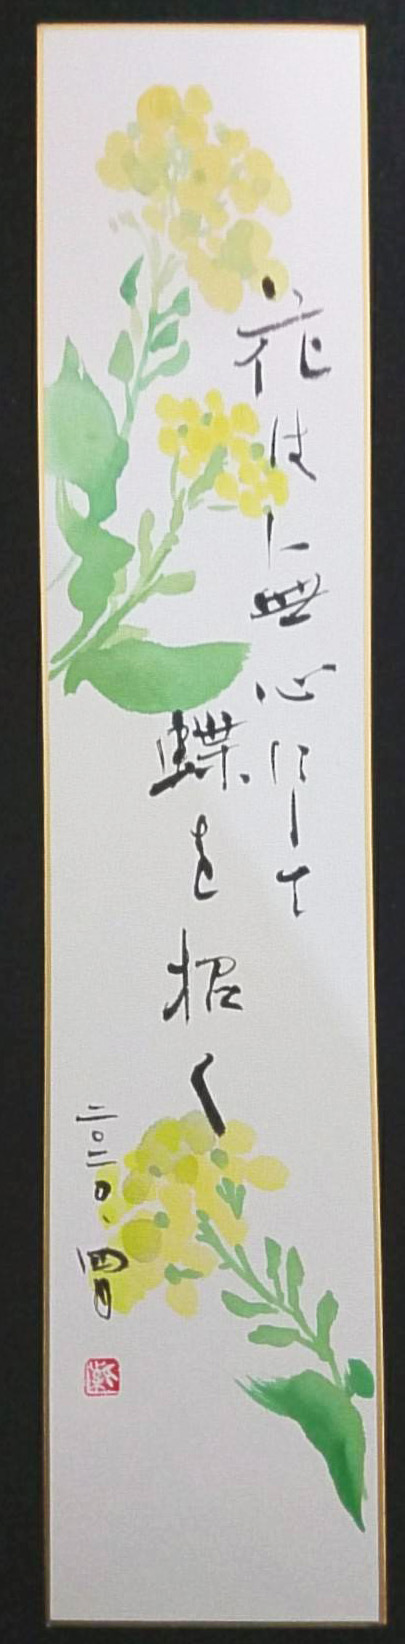 花は無心にして
蝶を招く
二〇二〇.四月